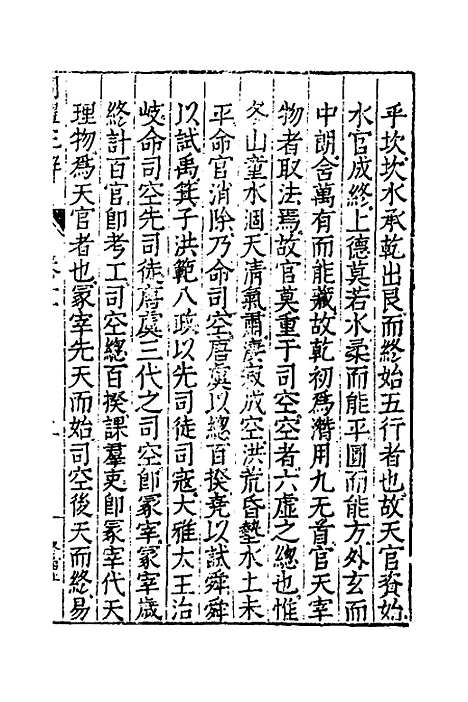 乎坎坎水承乾出艮而終始五行者也故天官資始
水官成終上德莫若水柔而能平圓而能方外玄而
中朗舍萬有而能藏故乾初爲潛用九无首官天宰
物者取法焉故官莫重于司空空者六虛之總也惟
冬山童水涸天清氣肅廖寂成空洪荒昏墊水土未
平命官消除乃命司空唐虞以總百揆堯以試舜舜
以試禹箕子洪範八政以先司徒司寇大雅太王治
岐命司空先司徒唐虞三代之司空卽冢宰冢宰歲
終計百官卽考工司空總百揆課羣吏卽冢宰代天
理物爲天官者也冢宰先天而始司空後天而終易